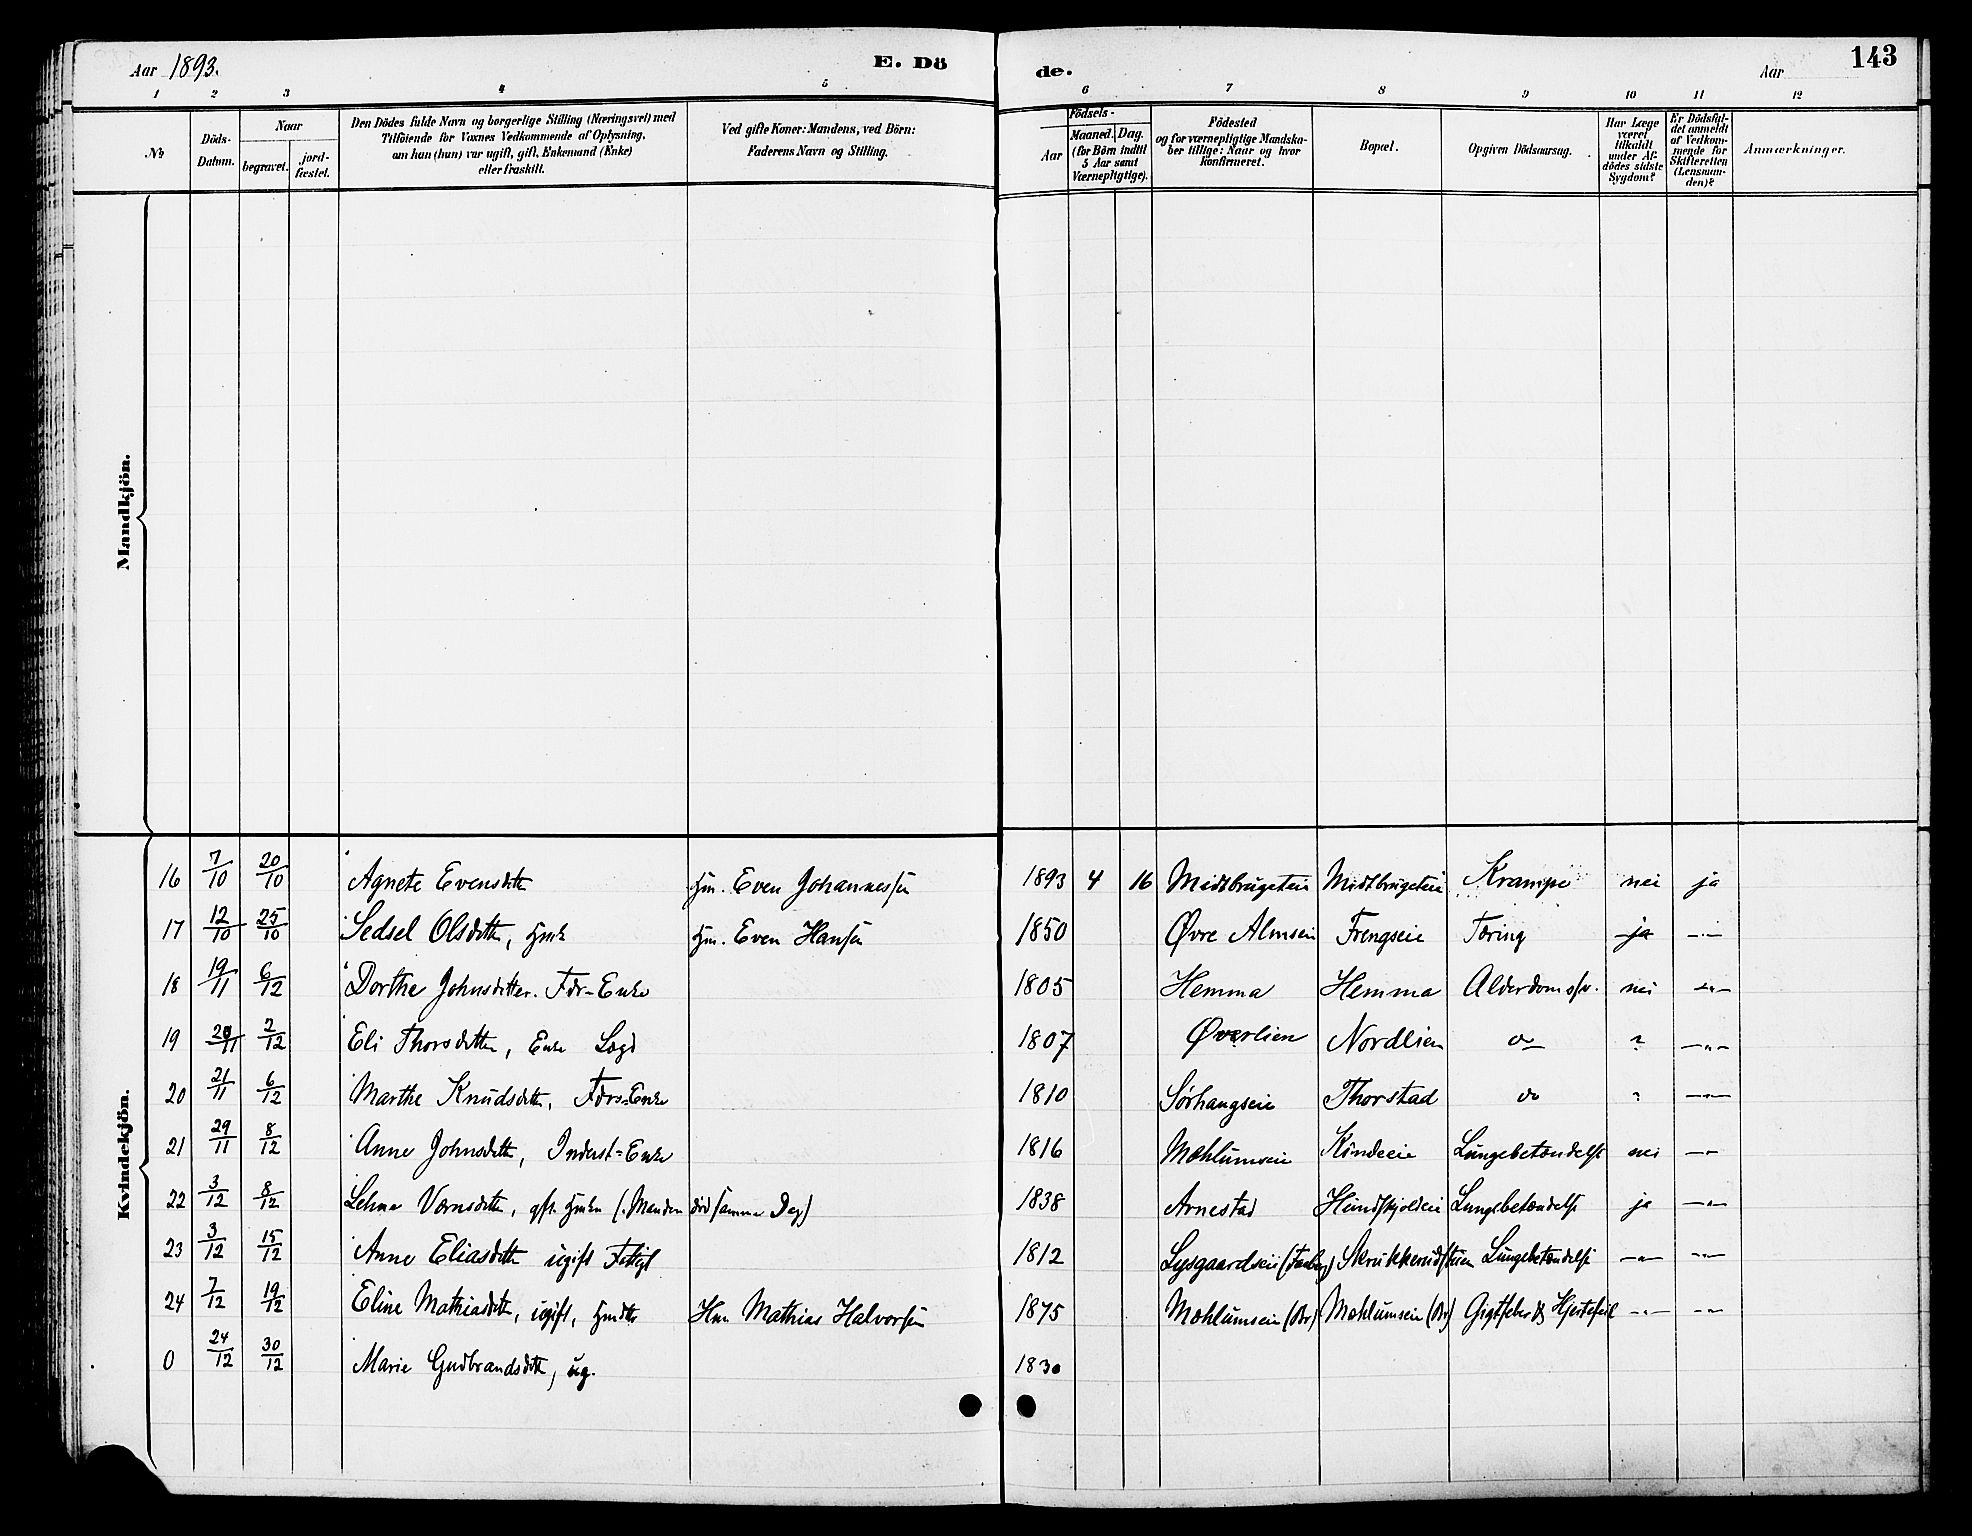 Aar 1893. E. Dö de. Aar 143
1 2 3 4 5 6 7 8 9 10 11 12
No
Döds-Datum.
Naar
begravet.
jord-fæstet.
Den Dödes fulde Navn og borgerlige Stilling (Næringsvei) med
Tilföiende for Voxnes Vedkommende af Oplysning,
om han (hun) var ugift, gift, Enkemand (Enke)
eller fraskilt.
Ved gifte Koner: Mandens, ved Börn:
Faderens Navn og Stilling.
Födsels-
Aar
Maaned. Dag.
(for Börn indtil
5 Aar samt
Værnepligtige).
Födested
og for værnepligtige Mandska-
ber tillige: Naar og hvor
konfirmeret.
Bopæl.
Opgiven Dödsaarsag.
Har Læge
været
tilkaldt
under Af-
dödes sidste
Sygdom?
Er Dödsfal-
det anmeldt
af Vedkom-
mende for
Skifteretten
(Lensman-
den)?
Anmærkninger.
Mandkjön.
Kvindekjön.
16 7/10 20/10 Agnete Evensdtter Gm. Even Johannessen 1893 4 16 Midtbrugeteie Midtbrugeteie Krampe nei ja
17 12/10 25/10 Sedsel Olsdtter, Even Hansen 1850 Øvre Almseie Frengseie Tæring ja -"-
18 19/11 6/12 Dorthe Johnsdtter. Fdr-Enke 1805 Hemma Hemma Alderdomssv. nei -"-
19 20/11 7/12 Eli Thorsdtter, Enke Lægd 1807 Øverlien Nordlien do ? -"-
20 21/11 6/12 Marthe Knudsdtter, Fdrs-Enke 1810 Sørhaugseie Thorstad do ? -"-
21 29/11 8/12 Anne Johnsdtter, Inderst-Enke 1816 Mæhlumseie Kindeeie Lungebetændelse nei -"-
22 3/12 8/12 Lehne gft. (Manden död samme Dag) 1838 Arnestad Lungebetændelse ja -"-
23 3/12 15/12 Anne Eliasdtter ugift Fattigl 1812 Lysgaardseie (Faaberg) Skrukkerudstuen Lungebetændelse -"- -"-
24 7/12 19/12 Eline Mathiasdtter, ugift, Gmdtr Hm. Mathias Halvorsen 1875 Mæhlumseie (Br) Mæhlumseie (Br) Gigtfeber & Hjertefeil -"- -"-
0 24/12 30/12 Marie Gudbrandsdtt, ug. 1830